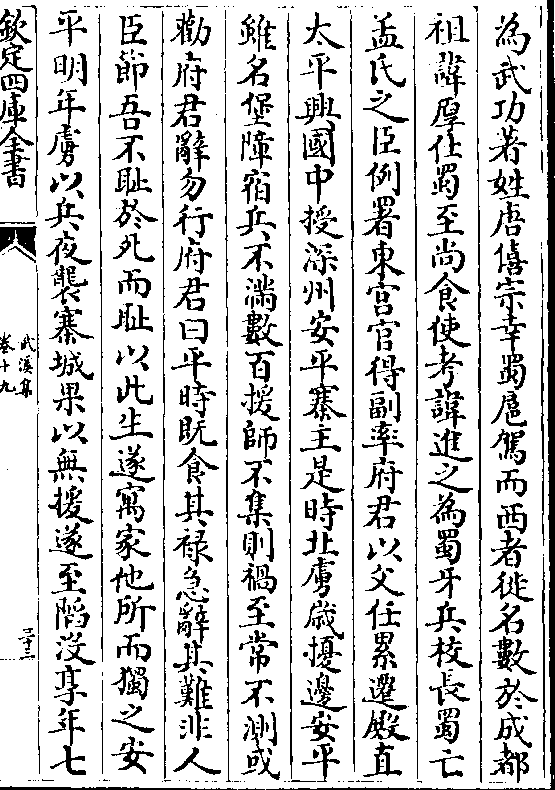 為武功著姓唐僖宗幸蜀扈駕而西者徙名數於成都
祖諱厚仕蜀至尚食使考諱進之為蜀牙兵校長蜀亡
孟氏之臣例署東宫官得副率府君以父任累遷殿直
太平興國中授深州安平寨主是時北虜歲擾邊安平
雖名堡障宿兵不滿數百援師不集則禍至常不測或
勸府君辭勿行府君曰平時既食其禄急辭其難非人
臣節吾不耻於死而耻以此生遂寓家他所而獨之安
平明年虜以兵夜襲寨城果以無援遂至䧟没享年七
欽定四庫全書
武溪集
卷十九
二十三